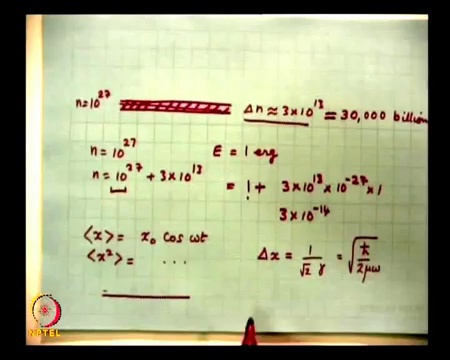 n=10^27 Δn ≈ 3×10^13 = 30,000 billion
n = 10^27 E = 1 erg
n = 10^27 + 3×10^13 = 1 + 3×10^13 × 10^-27 × 1
3×10^-14
⟨x⟩ = x₀ cos ωt
⟨x²⟩ = ... Δx = 1/(√2 γ) = √(ħ/2μω)
NPTEL